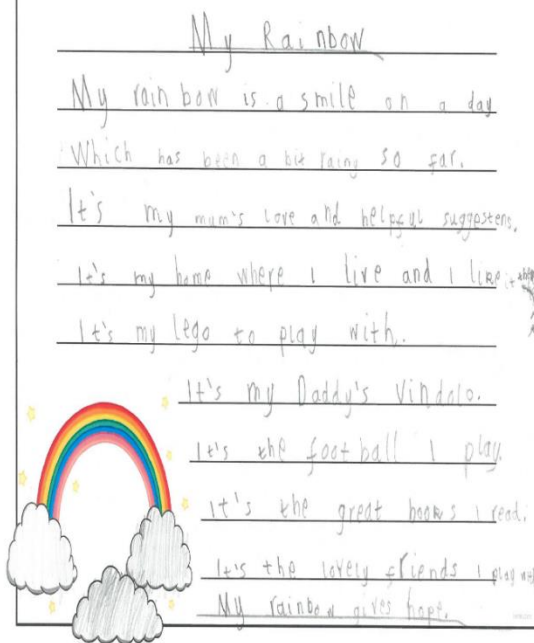 My Rainbow
My rainbow is a smile on a day
Which has been a bit rainy so far.
It's my mum's love and helpful suggestens.
It's my home where I live and I like it there
It's my lego to play with.
It's my Daddy's Vindalo.
It's the football I play.
It's the great books I read.
It's the lovely friends I play with
My rainbow gives hope.